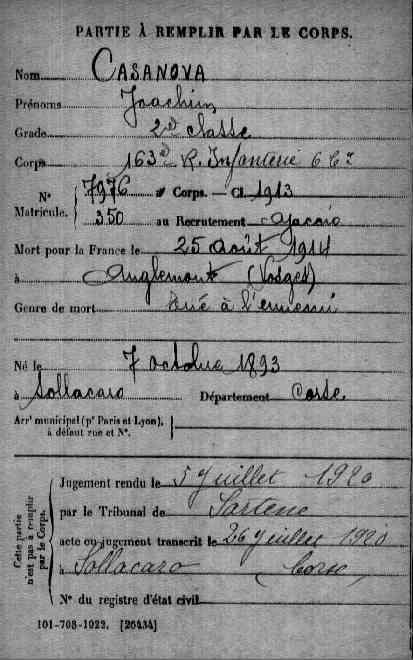 PARTIE À REMPLIR PAR LE CORPS.
Nom CASANOVA
Prénoms Joachim
Grade 2e classe
Corps 163e R. Infanterie 6 Cie
N° Matricule. { 7976 au Corps. — Cl. 1913
350 au Recrutement Ajaccio
Mort pour la France le 25 Août 1914
à Anglemont (Vosges)
Genre de mort tué à l'ennemi
Né le 7 octobre 1893
à Sollacaro Département Corse.
Arrt municipal (pr Paris et Lyon),
à défaut rue et N°.
Cette partie n'est pas à remplir par le Corps.
Jugement rendu le 5 Juillet 1920
par le Tribunal de Sartene
acte ou jugement transcrit le 26 Juillet 1920
à Sollacaro Corse
N° du registre d'état civil
101-708-1922. [26434]